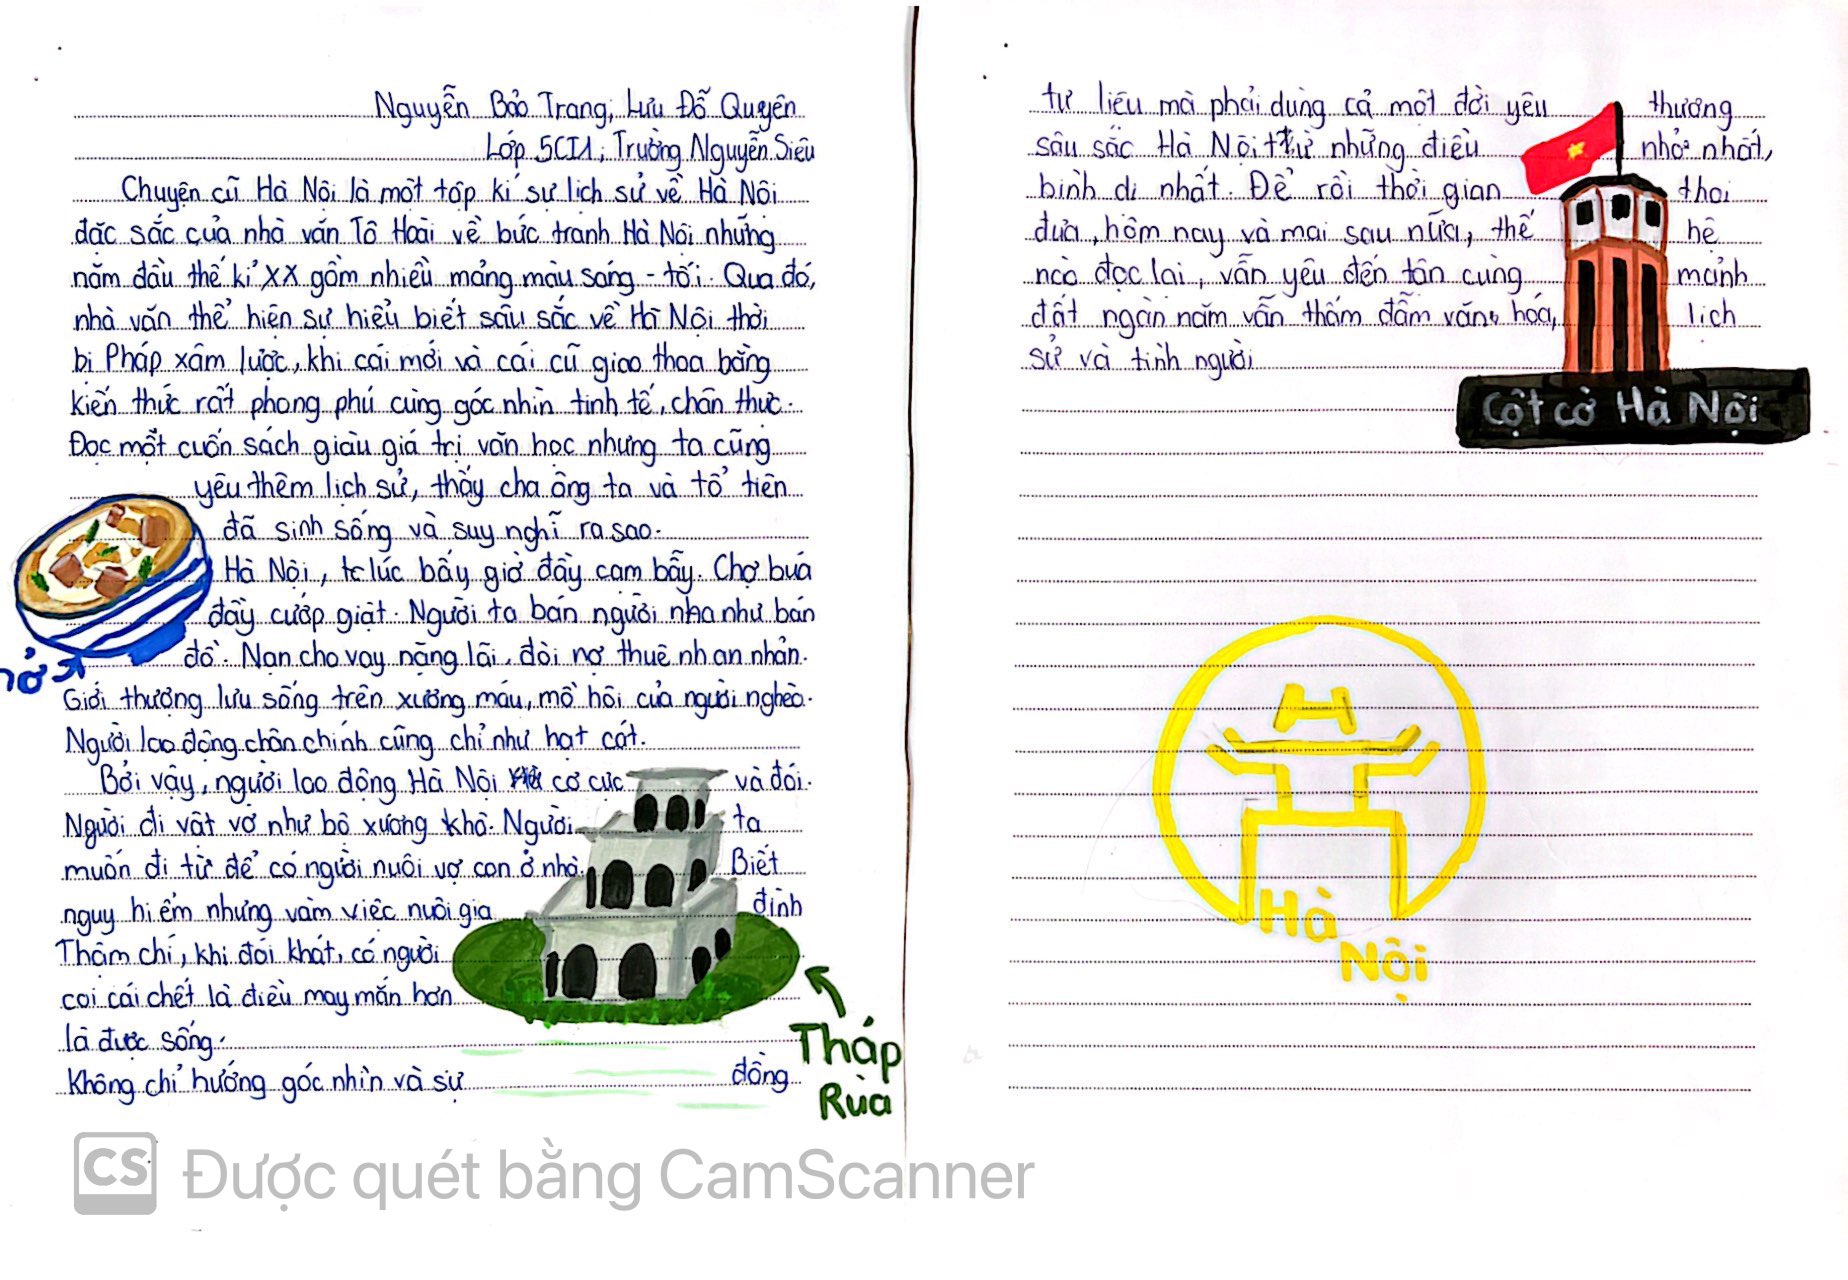 Nguyễn Bảo Trang, Lưu Đỗ Quyên
Lớp 5CI1, Trường Nguyễn Siêu
Chuyện cũ Hà Nội là một tập kí sự lịch sử về Hà Nội
đặc sắc của nhà văn Tô Hoài về bức tranh Hà Nội những
năm đầu thế kỉ XX gồm nhiều mảng màu sáng - tối. Qua đó,
nhà văn thể hiện sự hiểu biết sâu sắc về Hà Nội thời
bị Pháp xâm lược, khi cái mới và cái cũ giao thoa bằng
kiến thức rất phong phú cùng góc nhìn tinh tế, chân thực.
Đọc một cuốn sách giàu giá trị văn học nhưng ta cũng
yêu thêm lịch sử, thấy cha ông ta và tổ tiên
đã sinh sống và suy nghĩ ra sao.
Hà Nội, lúc bấy giờ đầy cạm bẫy. Chợ búa
đầy cướp giật. Người ta bán người như bán
đồ. Nạn cho vay nặng lãi, đòi nợ thuê nhan nhản.
Giới thượng lưu sống trên xương máu, mồ hôi của người nghèo.
Người lao động chân chính cũng chỉ như hạt cát.
Bởi vậy, người lao động Hà Nội cơ cực và đói.
Người đi vật vờ như bộ xương khô. Người ta
muốn đi tù để có người nuôi vợ con ở nhà. Biết
nguy hiểm nhưng vàm việc nuôi gia đình
Thậm chí, khi đói khát, có người
coi cái chết là điều may mắn hơn
là được sống.
Không chỉ hướng góc nhìn và sự đồng
Tháp
Rùa
tư liệu mà phải dùng cả một đời yêu thương
sâu sắc Hà Nội từ những điều nhỏ nhất,
bình dị nhất. Để rồi thời gian thoi
đưa, hôm nay và mai sau nữa, thế hệ
nào đọc lại, vẫn yêu đến tận cùng mảnh
đất ngàn năm vẫn thấm đẫm văn hóa, lịch
sử và tình người
Cột cờ Hà Nội
Hà
Nội
CS Được quét bằng CamScanner